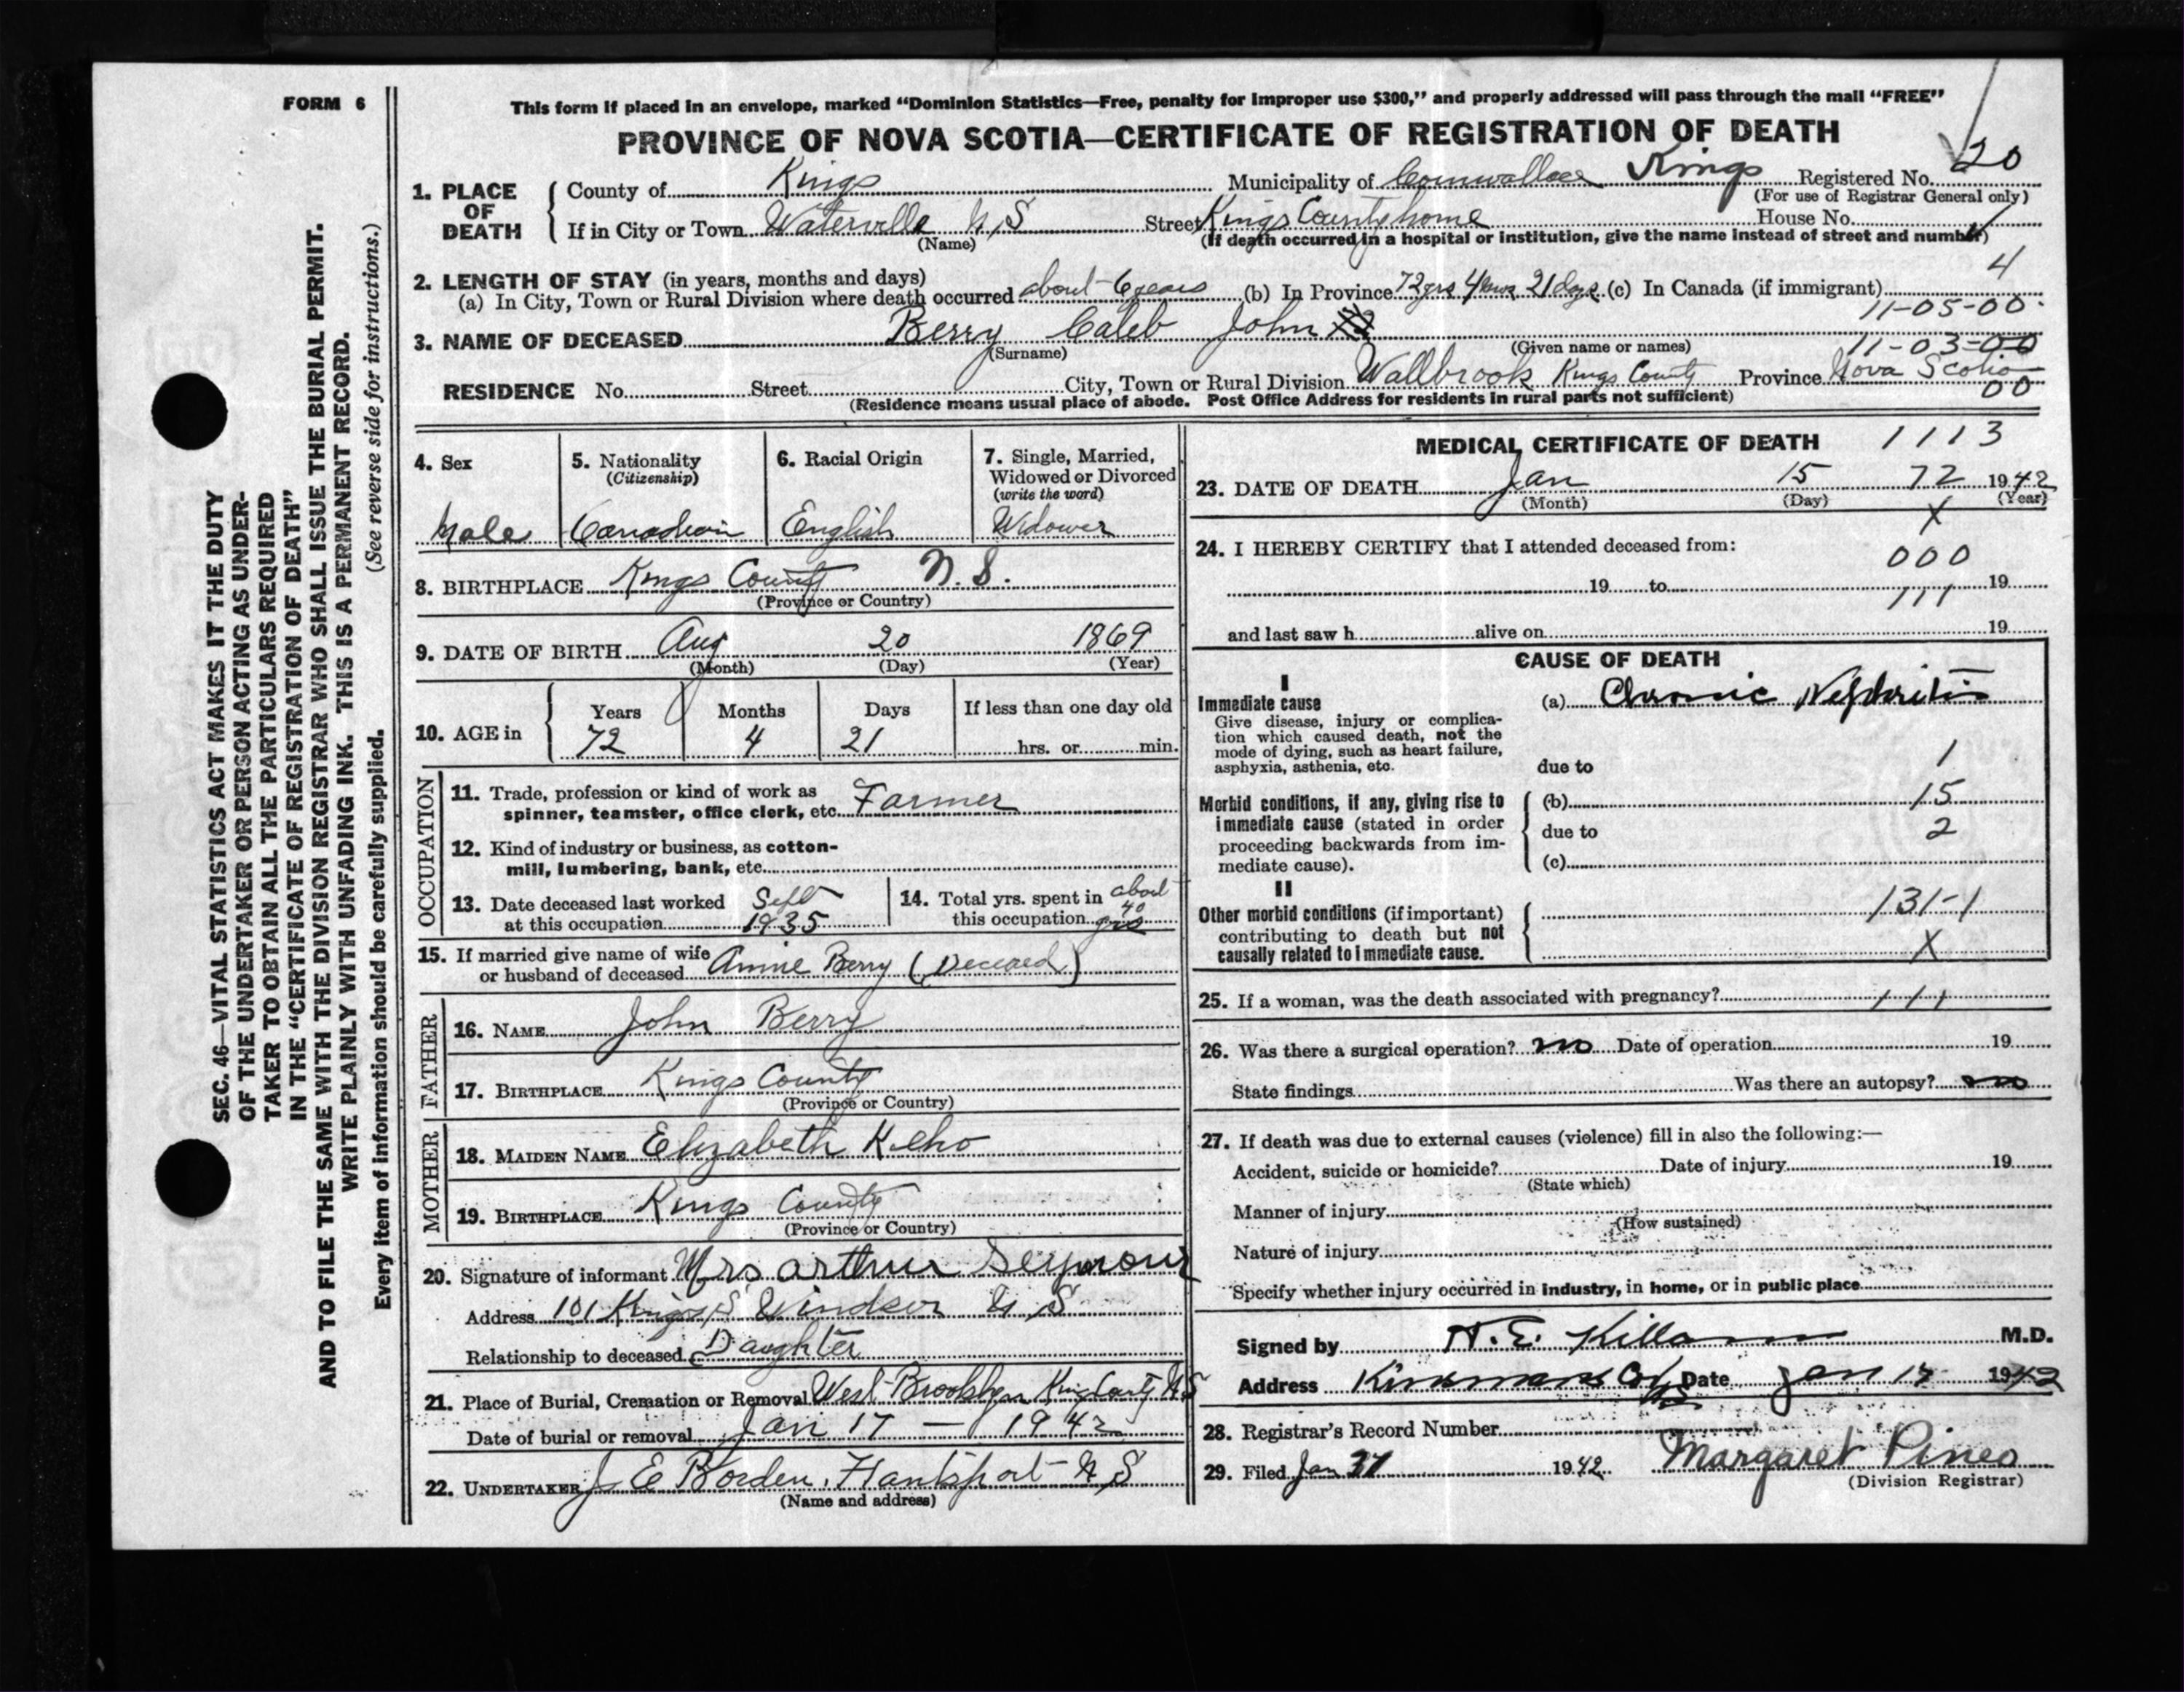 FORM 6
This form if placed in an envelope, marked "Dominion Statistics—Free, penalty for improper use $300," and properly addressed will pass through the mail "FREE"
PROVINCE OF NOVA SCOTIA—CERTIFICATE OF REGISTRATION OF DEATH
1. PLACE OF DEATH { County of Kings Municipality of Cornwallace Kings Registered No. 20
(For use of Registrar General only)
If in City or Town Waterville N.S Street Kings County home House No.
(Name) (If death occurred in a hospital or institution, give the name instead of street and number)
4
2. LENGTH OF STAY (in years, months and days)
(a) In City, Town or Rural Division where death occurred about 6 years (b) In Province 72 yrs 4 mos 21 days (c) In Canada (if immigrant)
11-05-00
3. NAME OF DECEASED Berry Caleb John
(Surname) (Given name or names) 11-03-00
RESIDENCE No. Street City, Town or Rural Division Wallbrook Kings County Province Nova Scotia
(Residence means usual place of abode. Post Office Address for residents in rural parts not sufficient) 00
4. Sex Male
5. Nationality (Citizenship) Canadian
6. Racial Origin English
7. Single, Married, Widowed or Divorced (write the word) Widower
8. BIRTHPLACE Kings County N.S.
(Province or Country)
9. DATE OF BIRTH Aug 20 1869
(Month) (Day) (Year)
10. AGE in { Years Months Days If less than one day old
72 4 21 hrs. or min.
OCCUPATION
11. Trade, profession or kind of work as spinner, teamster, office clerk, etc. Farmer
12. Kind of industry or business, as cotton-mill, lumbering, bank, etc.
13. Date deceased last worked at this occupation Sept 1935
14. Total yrs. spent in this occupation about 40 yrs
15. If married give name of wife or husband of deceased Annie Berry (Deceased)
FATHER
16. NAME John Berry
17. BIRTHPLACE Kings County
(Province or Country)
MOTHER
18. MAIDEN NAME Elizabeth Kelho
19. BIRTHPLACE Kings County
(Province or Country)
20. Signature of informant Mrs arthur Seymour
Address 101 Kings S Windsor N S
Relationship to deceased Daughter
21. Place of Burial, Cremation or Removal West Brooklyn King County N S
Date of burial or removal Jan 17 — 1942
22. UNDERTAKER J E Borden. Hantsport N S
(Name and address)
MEDICAL CERTIFICATE OF DEATH 1113
23. DATE OF DEATH Jan 15 72 1942
(Month) (Day) (Year)
X
24. I HEREBY CERTIFY that I attended deceased from:
000
19 to 19
111
and last saw h alive on 19
CAUSE OF DEATH
I
Immediate cause
Give disease, injury or complication which caused death, not the mode of dying, such as heart failure, asphyxia, asthenia, etc.
(a) Chronic Nephritis
1
due to
Morbid conditions, if any, giving rise to immediate cause (stated in order proceeding backwards from immediate cause).
(b) 15
due to 2
(c)
II
Other morbid conditions (if important) contributing to death but not causally related to immediate cause.
131-1
X
25. If a woman, was the death associated with pregnancy? 111
26. Was there a surgical operation? no Date of operation 19
State findings Was there an autopsy? no
27. If death was due to external causes (violence) fill in also the following:—
Accident, suicide or homicide? Date of injury 19
(State which)
Manner of injury
(How sustained)
Nature of injury
Specify whether injury occurred in industry, in home, or in public place
Signed by H. E. Killam M.D.
Address Kinsmans Cor NS Date Jan 1942
28. Registrar's Record Number
29. Filed Jan 31 1942 Margaret Pineo
(Division Registrar)
SEC. 46—VITAL STATISTICS ACT MAKES IT THE DUTY
OF THE UNDERTAKER OR PERSON ACTING AS UNDER-
TAKER TO OBTAIN ALL THE PARTICULARS REQUIRED
IN THE "CERTIFICATE OF REGISTRATION OF DEATH"
AND TO FILE THE SAME WITH THE DIVISION REGISTRAR WHO SHALL ISSUE THE BURIAL PERMIT.
WRITE PLAINLY WITH UNFADING INK. THIS IS A PERMANENT RECORD.
Every item of information should be carefully supplied. (See reverse side for instructions.)